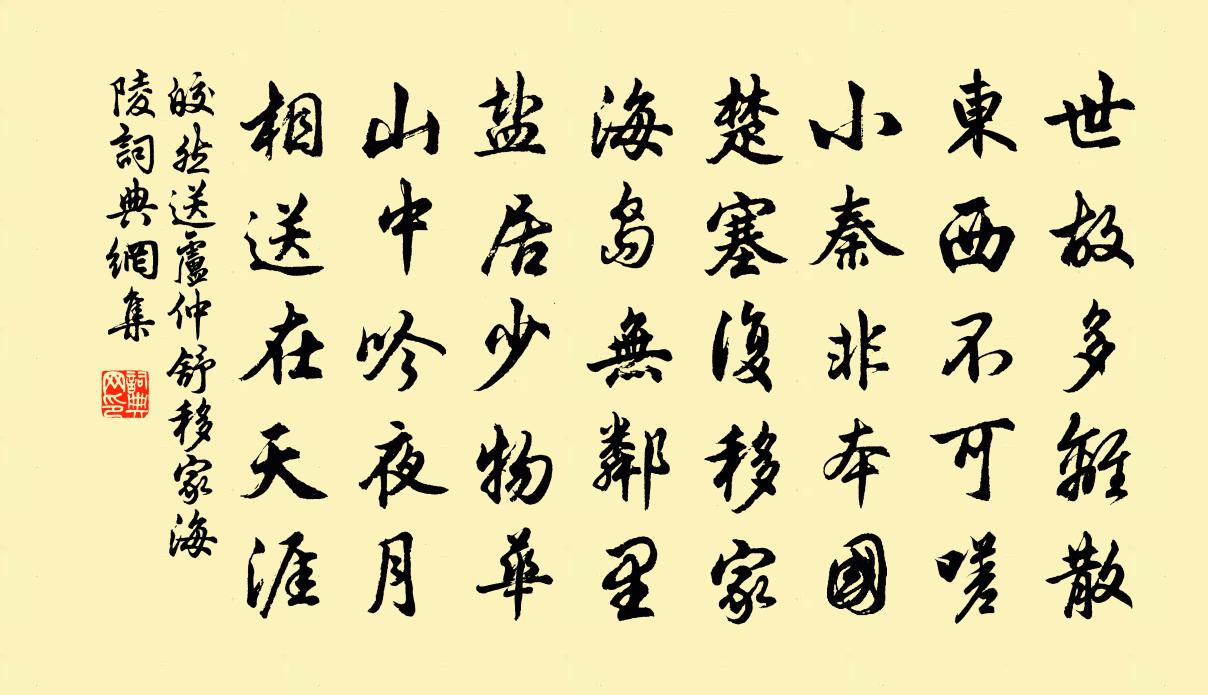 世故多離散
東西不可嗟
小秦非本國
楚塞復移家
海島無鄰里
盐居少物華
山中吟夜月
相送在天涯
皎然送盧仲舒移家海
陵詞典網集
詞典
网印